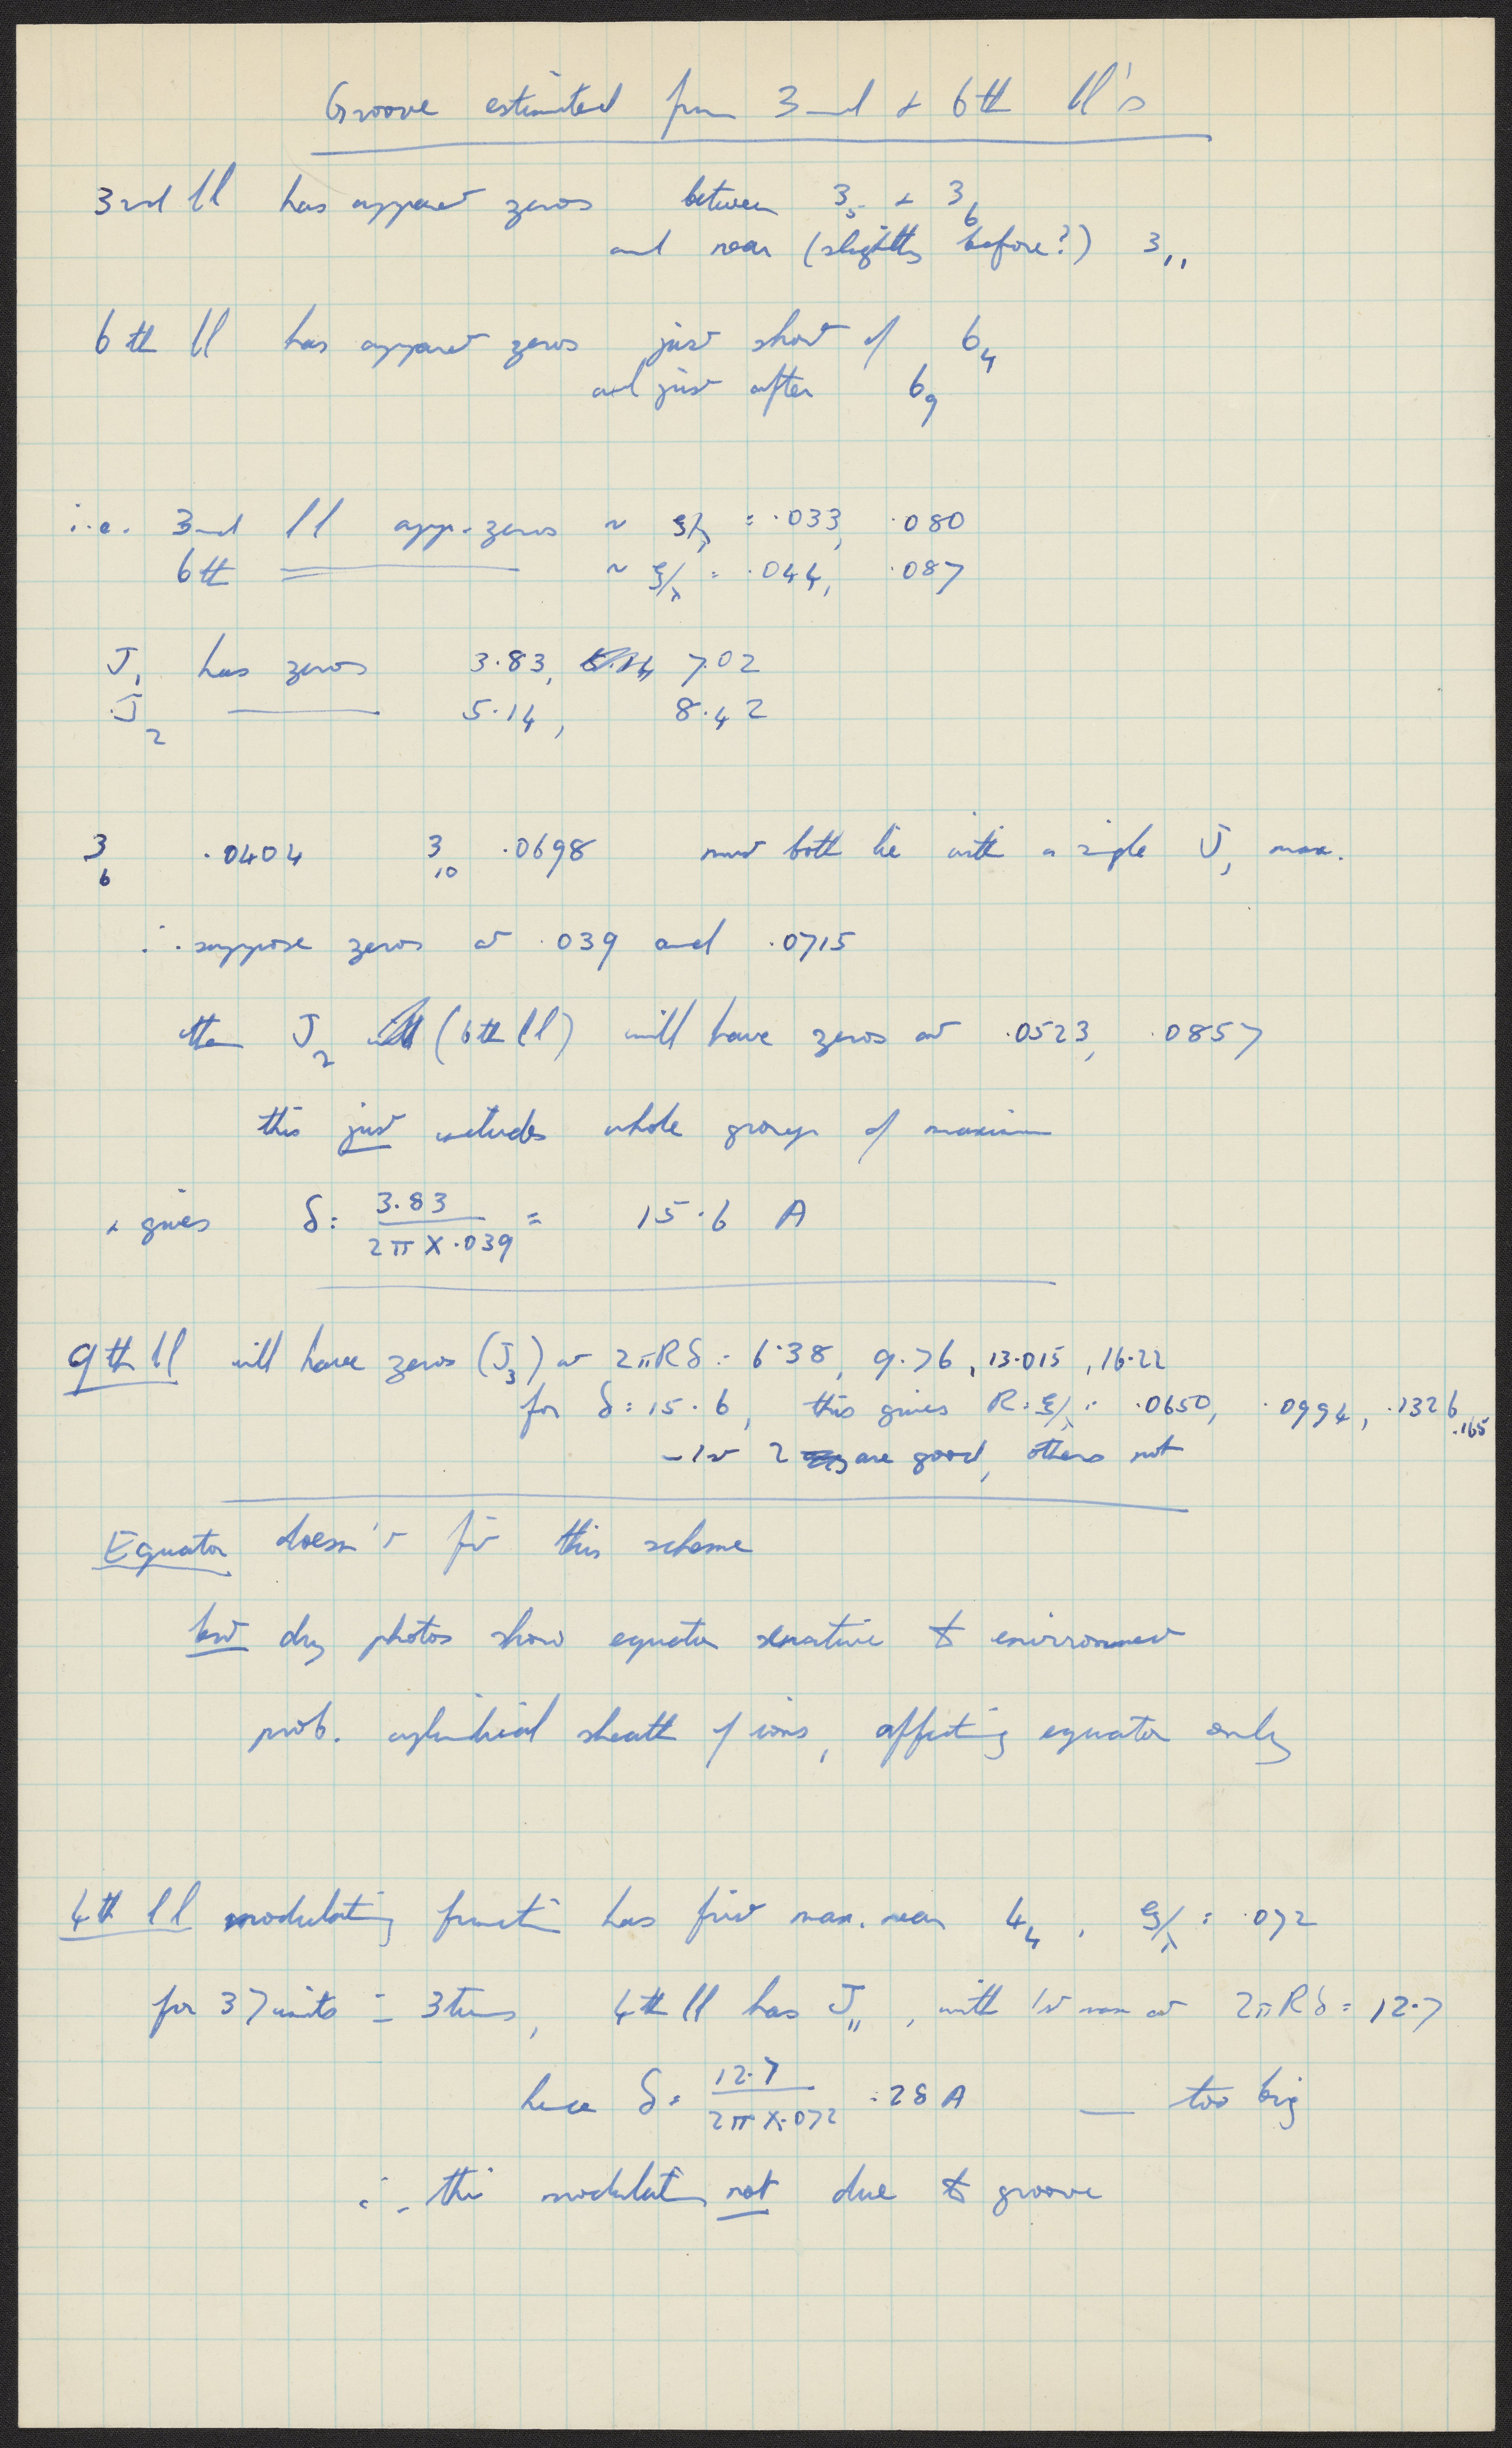 Groove estimated from 3rd & 6th ll's
3rd ll has apparent zeros between 3₅ & 3₆
and near (slightly before?) 3₁₁
6th ll has apparent zeros just short of 6₄
and just after 6₉
i.e. 3rd ll app. zeros ~ ξ/λ = ·033, ·080
6th ———— ~ ξ/λ = ·044, ·087
J₁ has zeros 3·83, 7·02
J₂ ———— 5·14, 8·42
3₆ ·0404 3₁₀ ·0698 must both lie with a single J₁ max.
∴ suppose zeros at ·039 and ·0715
then J₂ (6th ll) will have zeros at ·0523, ·0857
this just includes whole group of maxima
& gives δ = 3·83 / 2π × ·039 = 15·6 A
9th ll will have zeros (J₃) at 2πRδ = 6·38, 9·76, 13·015, 16·22
for δ = 15·6, this gives R = ξ/λ = ·0650, ·0994, ·1326, ·165
– 1st 2 are good, others not
Equator doesn't fit this scheme
but dry photos show equator sensitive to environment
prob. cylindrical sheath of ions, affecting equator only
4th ll modulating function has first max. near 4₄, ξ/λ = ·072
for 37 units = 3 turns, 4th ll has J₁₁, with 1st max at 2πRδ = 12·7
hence δ = 12·7 / 2π × ·072 = 28 A — too big
∴ this modulation not due to groove